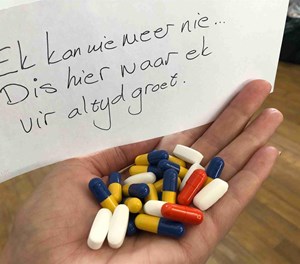 Ek kan nie meer nie...
Dis hier waar ek
vir altyd groet.